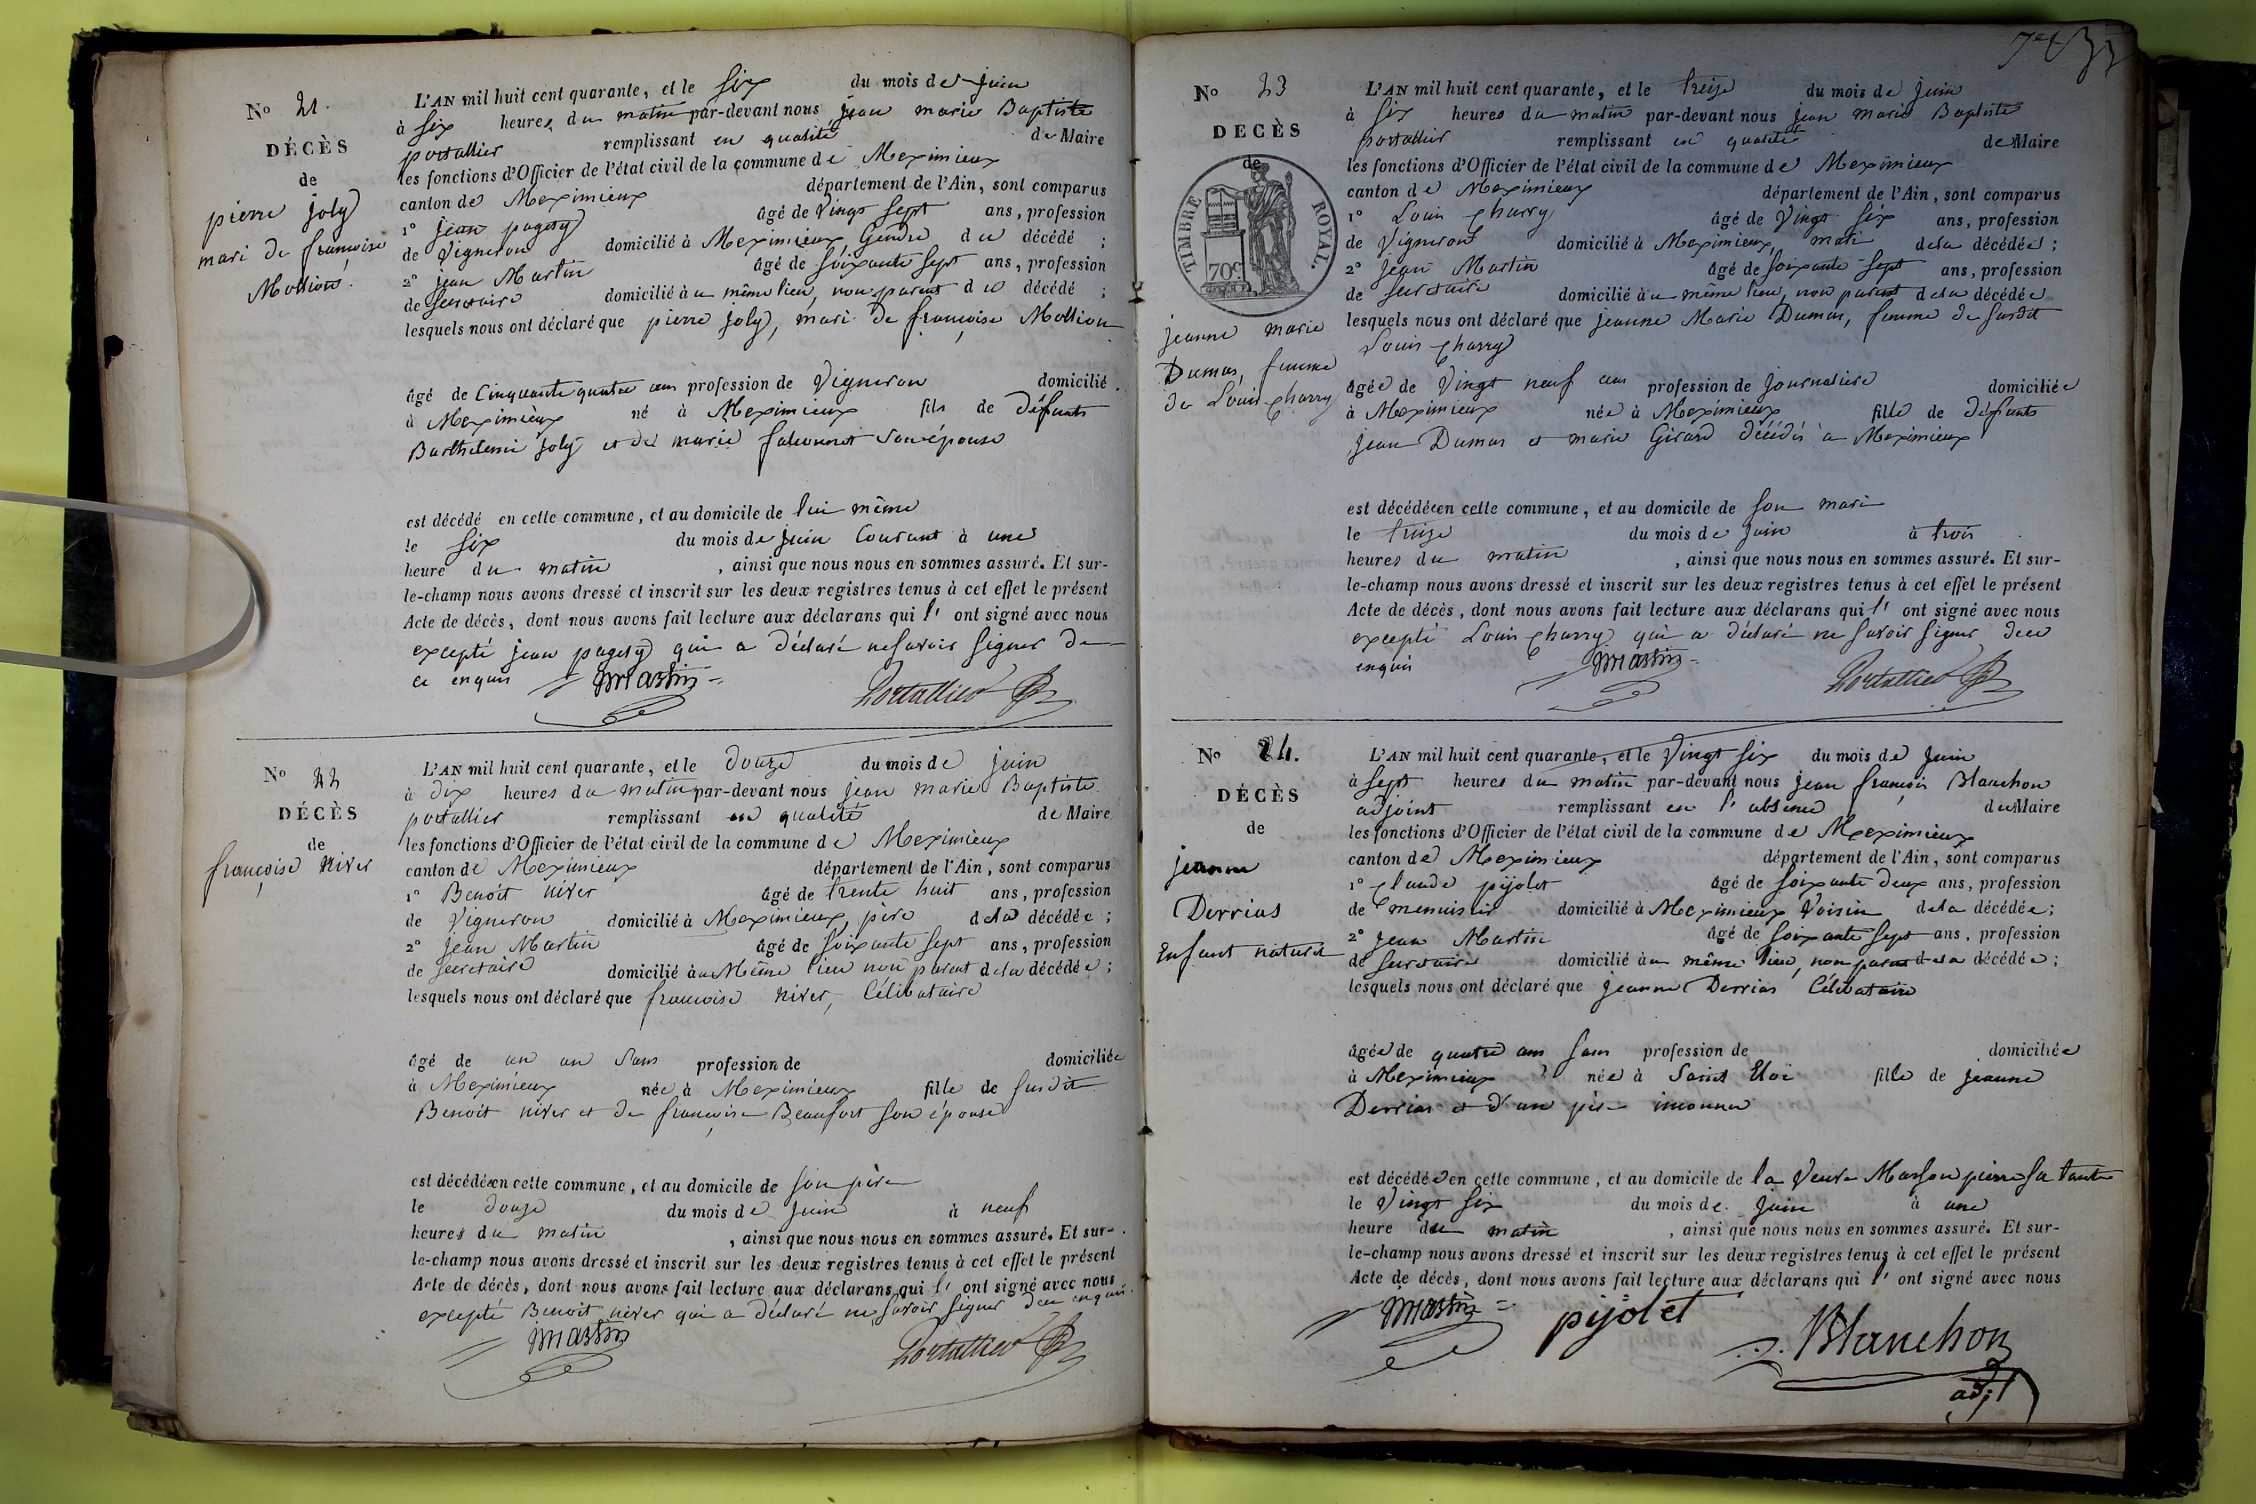 N° 21.
DÉCÈS
de
pierre joly
mari de francoise
Mollion.
L'AN mil huit cent quarante, et le six du mois de juin
à six heures du matin par-devant nous jean marie Baptiste
portallier remplissant en qualité de Maire
les fonctions d'Officier de l'état civil de la commune de Meximieux
canton de Meximieux département de l'Ain, sont comparus
1° jean pagesy âgé de vingt sept ans, profession
de Vigneron domicilié à Meximieux, Gendre du décédé ;
2° jean Martin âgé de soixante sept ans, profession
de secretaire domicilié à u même lieu, non parent du décédé ;
lesquels nous ont déclaré que pierre joly, mari de françoise Mollion
âgé de Cinquante quatre ans profession de Vigneron domicilié
à Meximieux né à Meximieux fils de défunts
Barthelemi joly et de marie falconnet son épouse
est décédé en cette commune, et au domicile de lui même
le six du mois de juin Courant à une
heure du matin , ainsi que nous nous en sommes assuré. Et sur-
le-champ nous avons dressé et inscrit sur les deux registres tenus à cet effet le présent
Acte de décès, dont nous avons fait lecture aux déclarans qui l' ont signé avec nous
excepté jean pagesy qui a déclaré ne savoir signer de
ce enquis
JMartin
Portallier
N° 22
DÉCÈS
de
françoise niver
L'AN mil huit cent quarante, et le douze du mois de juin
à dix heures du matin par-devant nous jean marie Baptiste
portallier remplissant en qualité de Maire
les fonctions d'Officier de l'état civil de la commune de Meximieux
canton de Meximieux département de l'Ain, sont comparus
1° Benoit niver âgé de trente huit ans, profession
de Vigneron domicilié à Meximieux, père de la décédée ;
2° jean Martin âgé de soixante sept ans, profession
de secretaire domicilié au Même lieu non parent de la décédée ;
lesquels nous ont déclaré que francoise niver, Célibataire
âgé de un an sans profession de domiciliée
à Meximieux née à Meximieux fille de susdit
Benoit niver et de françoise Beaufort son épouse
est décédée en cette commune, et au domicile de son père
le douze du mois de juin à neuf
heures du matin , ainsi que nous nous en sommes assuré. Et sur-
le-champ nous avons dressé et inscrit sur les deux registres tenus à cet effet le présent
Acte de décès, dont nous avons fait lecture aux déclarans qui l' ont signé avec nous
excepté Benoit niver qui a déclaré ne savoir signer de ce enquis.
JMartin
Portallier
N° 23
DECÈS
de
TIMBRE ROYAL.
70c
jeanne marie
Dumas, femme
de Louis Charry
L'AN mil huit cent quarante, et le treize du mois de juin
à six heures du matin par-devant nous jean marie Baptiste
portallier remplissant en qualité de Maire
les fonctions d'Officier de l'état civil de la commune de Meximieux
canton de Meximieux département de l'Ain, sont comparus
1° Louis Charry âgé de Vingt six ans, profession
de Vigneron domicilié à Meximieux, mari de la décédée ;
2° jean Martin âgé de soixante sept ans, profession
de secretaire domicilié à u même lieu, non parent de la décédée
lesquels nous ont déclaré que jeanne Marie Dumas, femme de susdit
Louis Charry
âgée de Vingt neuf ans profession de journaliere domiciliée
à Meximieux née à Meximieux fille de défunts
jean Dumas et marie Girard décédés à Meximieux
est décédée en cette commune, et au domicile de son mari
le treize du mois de juin à trois
heures du matin , ainsi que nous nous en sommes assuré. Et sur-
le-champ nous avons dressé et inscrit sur les deux registres tenus à cet effet le présent
Acte de décès, dont nous avons fait lecture aux déclarans qui l' ont signé avec nous
excepté Louis Charry qui a déclaré ne savoir signer de ce
enquis
JMartin
Portallier
N° 24.
DÉCÈS
de
jeanne
Derrias
Enfant naturel
L'AN mil huit cent quarante, et le Vingt six du mois de juin
à sept heures du matin par-devant nous jean françois Blanchon
adjoint remplissant en l'absence du Maire
les fonctions d'Officier de l'état civil de la commune de Meximieux
canton de Meximieux département de l'Ain, sont comparus
1° Claude pijolet âgé de soixante deux ans, profession
de menuisier domicilié à Meximieux Voisin de la décédée ;
2° jean Martin âgé de soixante sept ans, profession
de secretaire domicilié à u même lieu, non parent de la décédée ;
lesquels nous ont déclaré que jeanne Derrias Célibataire
âgée de quatre ans sans profession de domiciliée
à Meximieux née à Saint Eloi fille de jeanne
Derrias et d'un père inconnu
est décédée en cette commune, et au domicile de la Veuve Masson pierre sa tante
le Vingt six du mois de juin à une
heure du matin , ainsi que nous nous en sommes assuré. Et sur-
le-champ nous avons dressé et inscrit sur les deux registres tenus à cet effet le présent
Acte de décès, dont nous avons fait lecture aux déclarans qui l' ont signé avec nous
JMartin pijolet
Blanchon
adjt